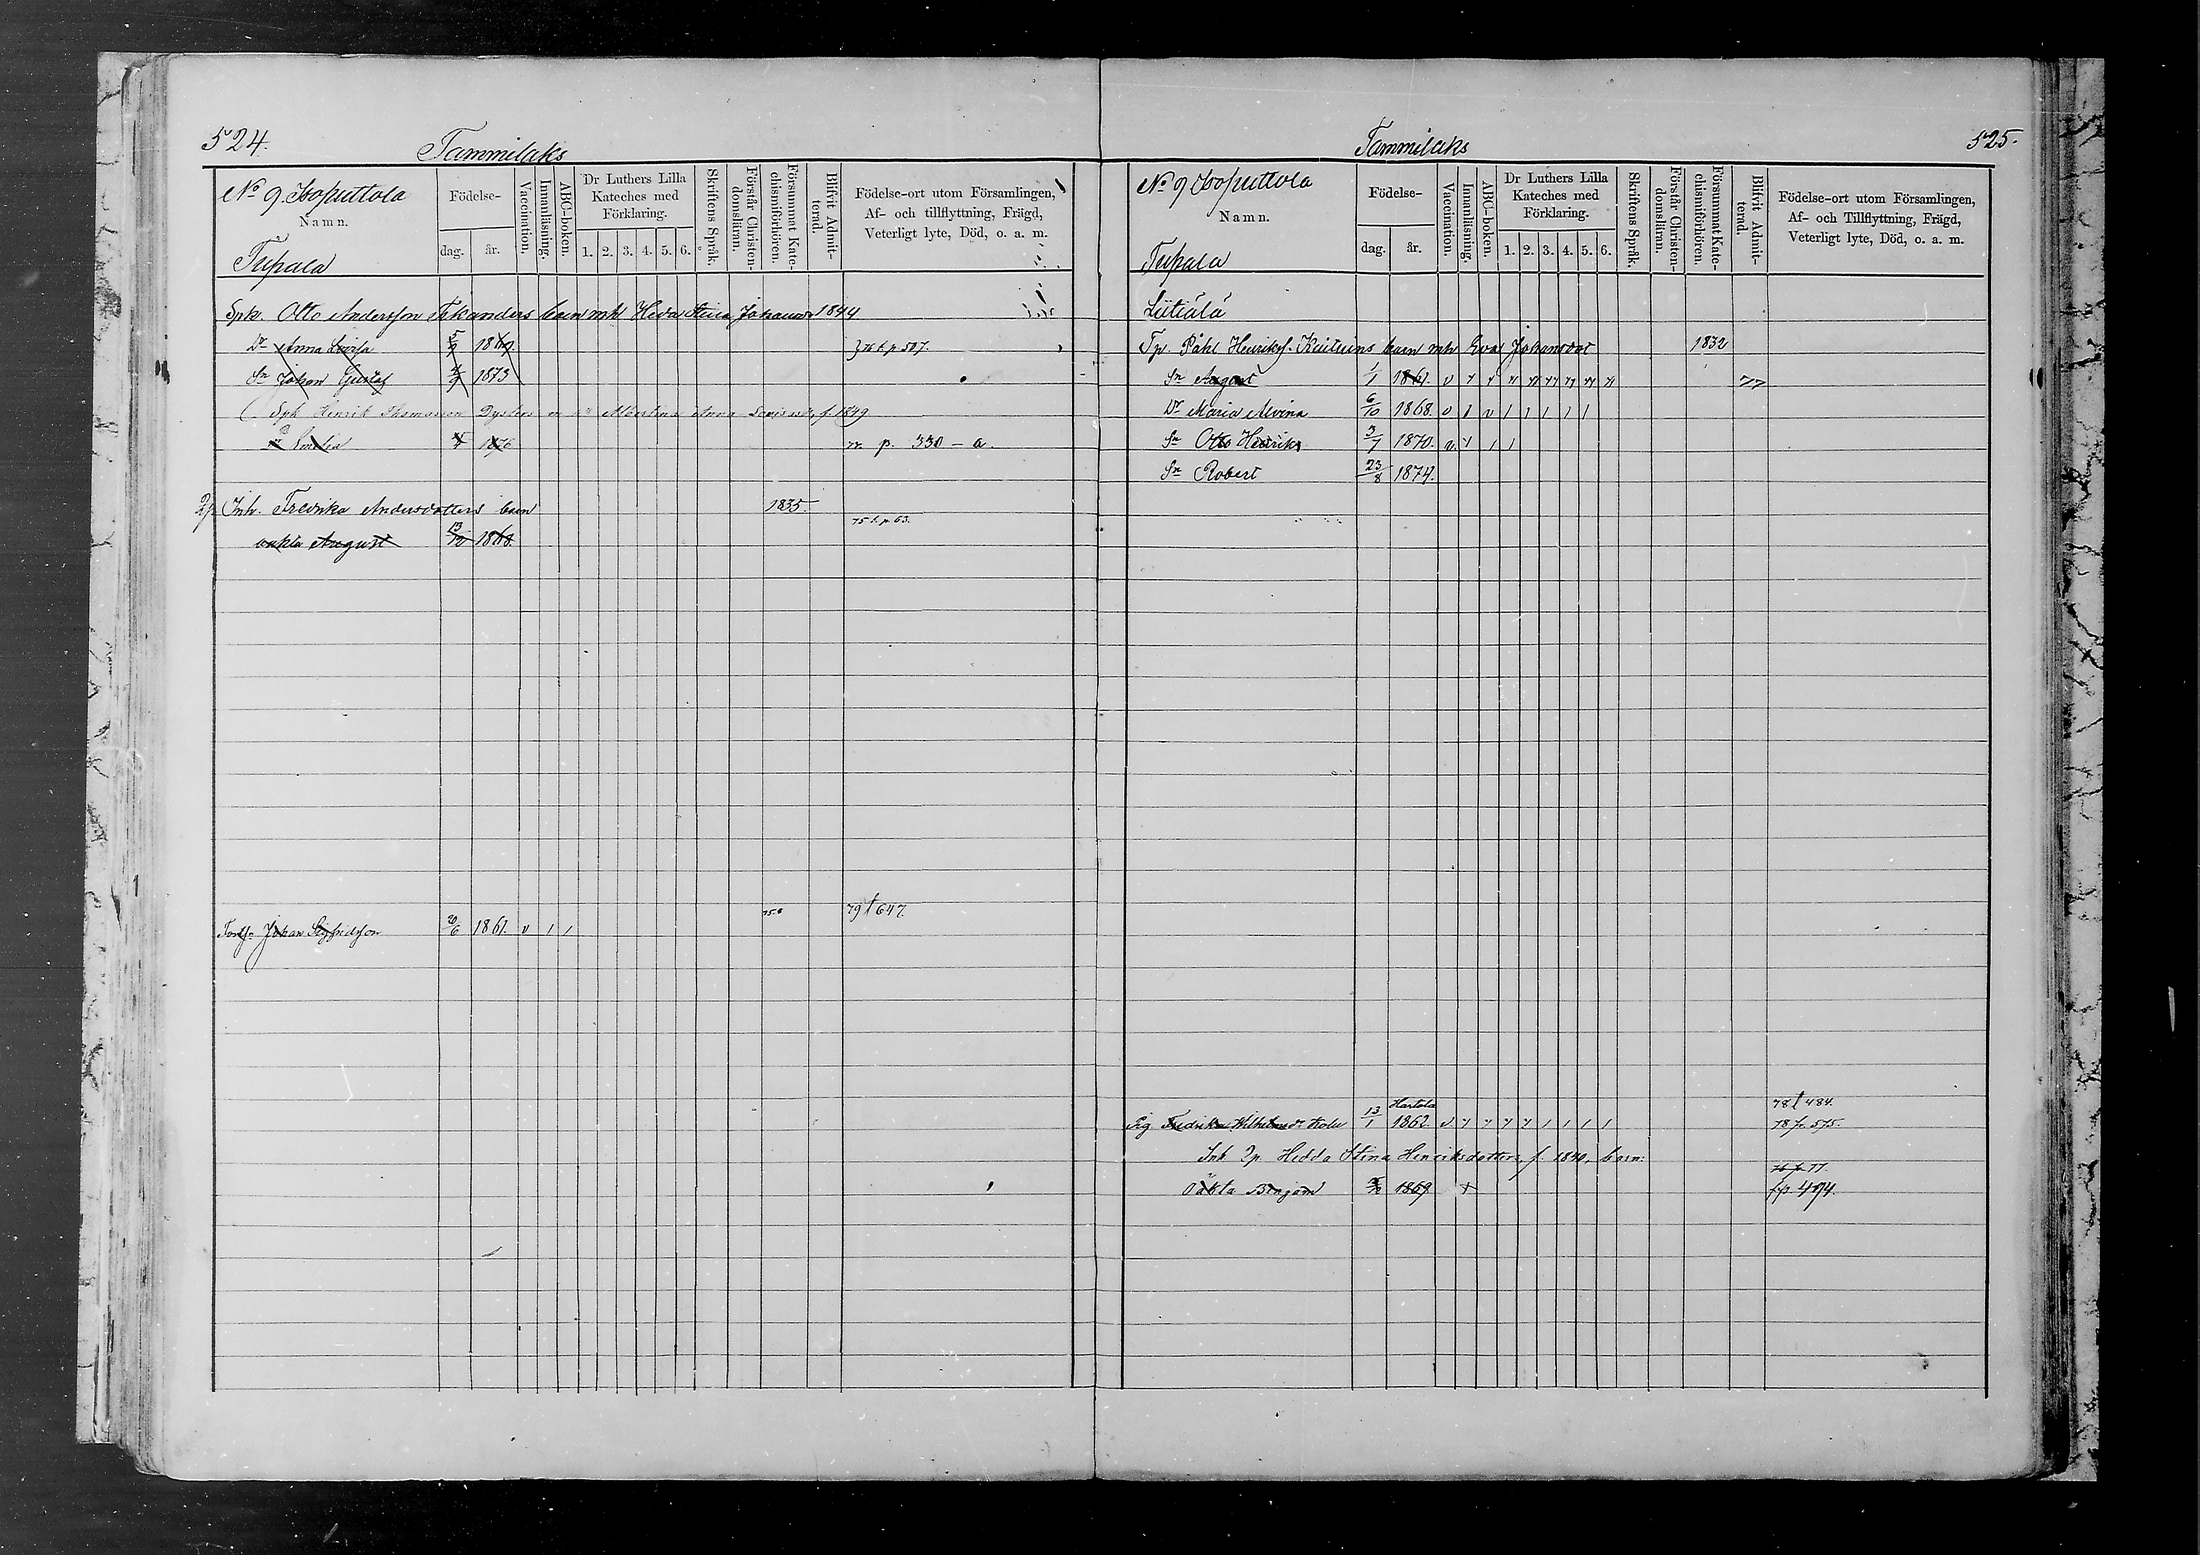 524.
Tammilaks
No 9. Isoputtola
Namn.
Tupala
Födelse-
dag. år.
Vaccination.
Innanläsning.
ABC-boken.
Dr Luthers Lilla Kateches med Förklaring.
1. 2. 3. 4. 5. 6.
Skriftens Språk.
Förstår Christendomsläran.
Försummat Katechismiförhören.
Blifvit Admitterad.
Födelse-ort utom Församlingen,
Af- och tillflyttning, Frägd,
Veterligt lyte, Död, o. a. m.
Otto Andersson barn mh Heda Stina 1844
Dr Anna Lovisa 1869 p. 507.
Sn Johan Gustaf 1873
Henrik Thomasson Albertina Anna f. 1849
Emelia 1876 p. 330 - a
Inh. Fredrika Andersdotters barn 1835
75 t. p. 63.
oäkta August 13/12 1868
79 t 647.
Johan Sigfridsson 1861. v / /
525.
Tammilaks
No 9 Isoputtola
Namn.
Tupala
Födelse-
dag. år.
Vaccination.
Innanläsning.
ABC-boken.
Dr Luthers Lilla Kateches med Förklaring.
1. 2. 3. 4. 5. 6.
Skriftens Språk.
Förstår Christendomsläran.
Försummat Katechismiförhören.
Blifvit Admitterad.
Födelse-ort utom Församlingen,
Af- och Tillflyttning, Frägd,
Veterligt lyte, Död, o. a. m.
Liitiälä
Tp. Påhl barn mh Eva Johansdot 1832
Sn August 1/1 1861. v 77
Dr Maria Alvina 6/10 1868. v
Sn Otto Henrik 3/7 1870. v.
Sn Robert 23/8 1874.
Hartola 78 t 484.
Pig Fredrika 13/1 1862. v 78 fr. 575.
Inh Hedda Stina Henriksdotters f. 1840, barn:
76 fr 77
Oäkta Benjam 1869 494.